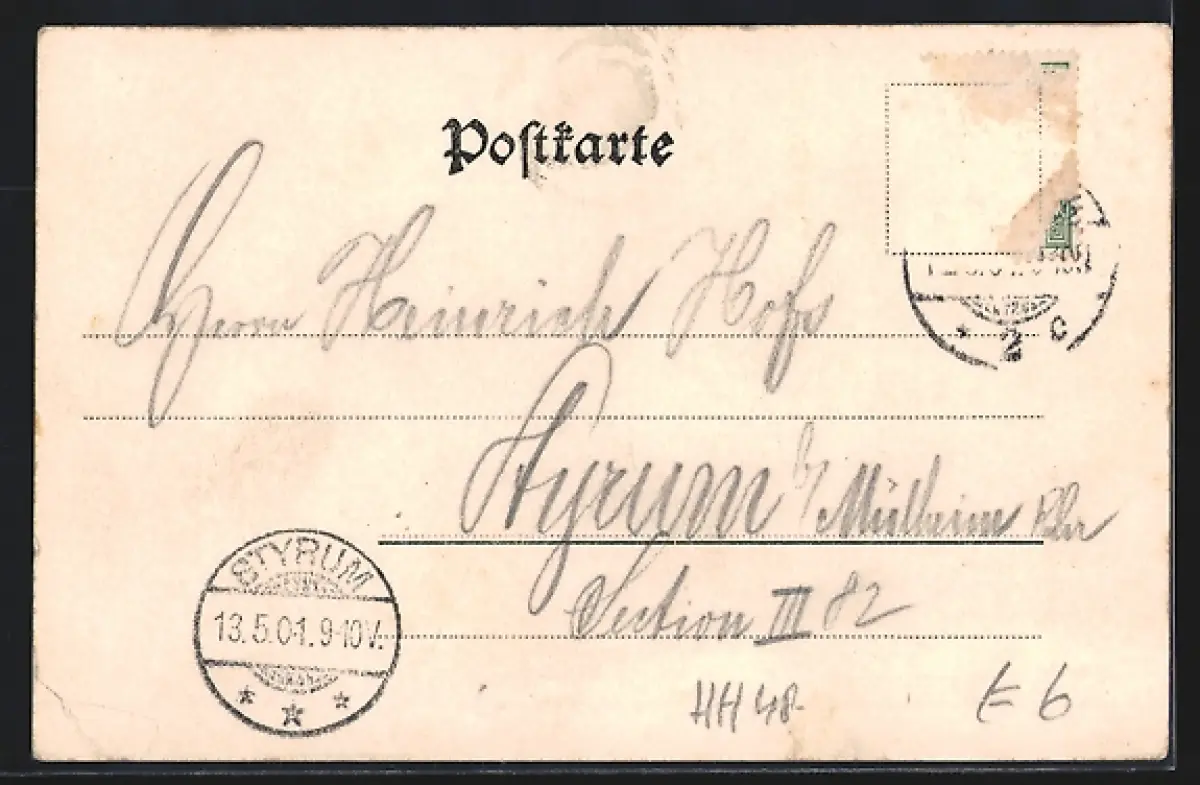 Postkarte
Herrn Heinrich Hofs
Styrum b/ Mülheim Ruhr
Section III 82
STYRUM
13.5.01.9-10V.
* * *
* 2 c
HH 48.-
E 6